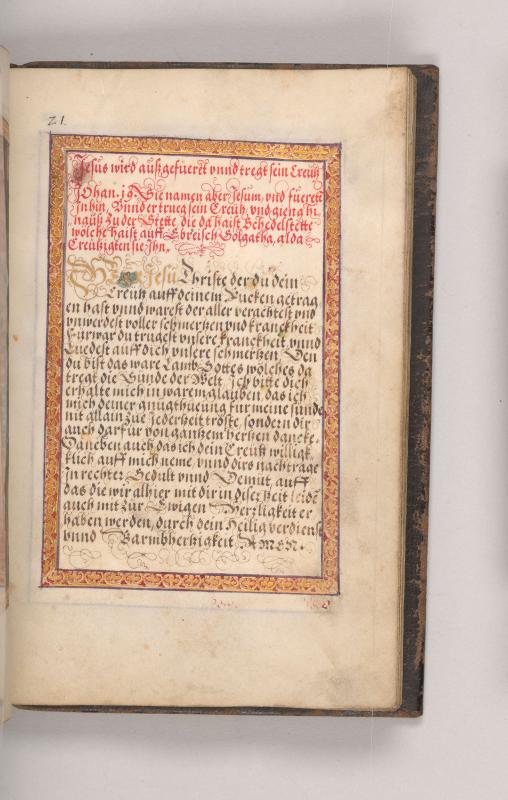 21.
Jesus wird außgefüeret vnnd tregt sein Creutz
Johan. 19 Sie namen aber Jesum, vnd füerett
In hin, Vnnd er trueg sein Creutz, vnd gieng hi
nauß zu der Stette, die da haist Schedelstette
wölche haist auff Ebreisch Golgatha, alda
Creutzigten sie Ihn,
Jesu Christe der du dein
Creutz auff deinem Rucken getrag
en hast vnnd warest der aller verachtest vnd
vnwerdest voller schmertzen vnd kranckheit
Fürwar du trugest vnsere kranckheit vnnd
Luedest auff dich vnsere schmertzen, Den
du bist das ware Lamb Gottes wölches da
tregt die Sünde der Welt, Ich bitte dich
erhalte mich in warem glauben das ich
mich deiner gnugthueung für meine sünde
nit allain zue Jederheit tröste, sondern dir
auch darfür von gantzem hertzen dancke,
Daneben auch das ich dein Creutz willig
klich auff mich neme, vnnd dirs nachtrage
In rechter Gedult vnnd Demüt, auff
das die wir alhier mit dir in diser zeit leidē
auch mit zur Ewigen Herrligkeit er
haben werden, durch dein Heilig verdienst
vnnd Barmhertzigkeit AMEN.